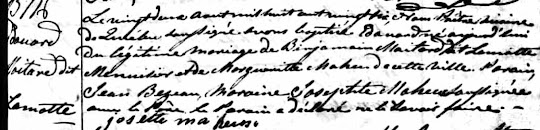 B716
Edouard
Moitard dit
Lamotte
Le vingt deux aout mil huit cent vingt six, Nous Prêtre vicaire
de Québec soussigné avons baptisé Edouard né aujourd'hui
du légitime mariage de Benjamin Moitard dit Lamotte
Menuisier et de Marguerite Maheu de cette ville. Parain
Jean Bezeau, Maraine Josephte Maheu soussignée
avec le Père, le Parain a déclaré ne savoir faire.
josette maheux